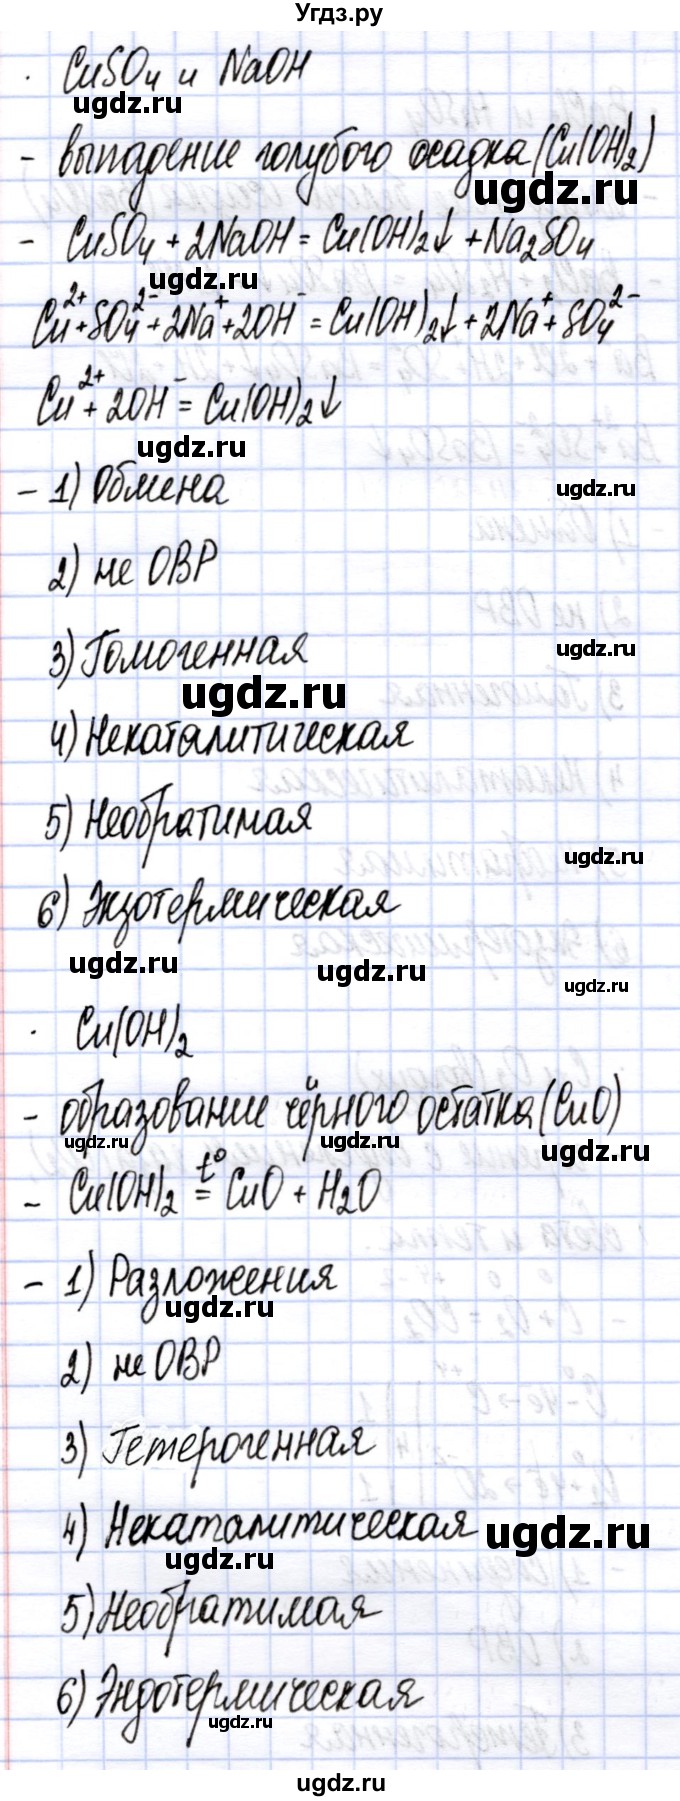 Угдз.ру
· CuSO₄ и NaOH
ugdz.ru
- выпадение голубого осадка (Cu(OH)₂)
ugdz.ru
- CuSO₄ + 2NaOH = Cu(OH)₂↓ + Na₂SO₄
ugdz.ru
Cu²⁺ + SO₄²⁻ + 2Na⁺ + 2OH⁻ = Cu(OH)₂↓ + 2Na⁺ + SO₄²⁻
Cu²⁺ + 2OH⁻ = Cu(OH)₂↓
ugdz.ru
- 1) Обмена
ugdz.ru
2) не ОВР
3) Гомогенная
ugdz.ru
ugdz.ru
4) Некаталитическая
5) Необратимая
ugdz.ru
6) Экзотермическая
ugdz.ru
ugdz.ru
ugdz.ru
· Cu(OH)₂
- образование чёрного остатка (CuO)
ugdz.ru
ugdz.ru
ugdz.ru
- Cu(OH)₂ =t⁰ CuO + H₂O
- 1) Разложения
ugdz.ru
2) не ОВР
3) Гетерогенная
4) Некаталитическая
ugdz.ru
ugdz.ru
5) Необратимая
6) Эндотермическая
ugdz.ru
ugdz.ru